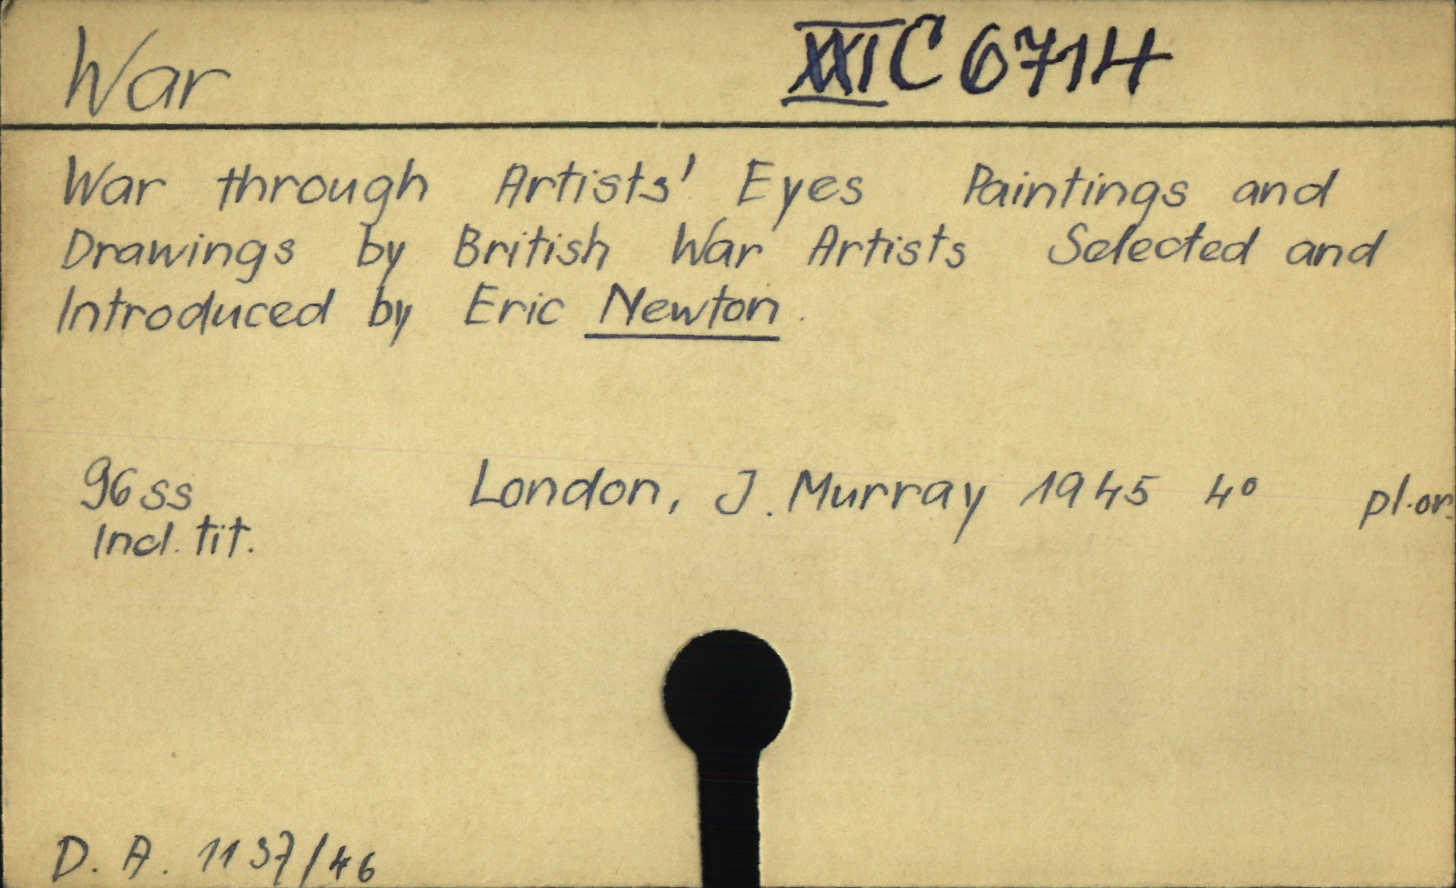 War XXI C 6714
War through Artists' Eyes Paintings and
Drawings by British War Artists Selected and
Introduced by Eric Newton.
96 ss London, J. Murray 1945 4° pl. or.
Incl. tit.
D. A. 1137/46